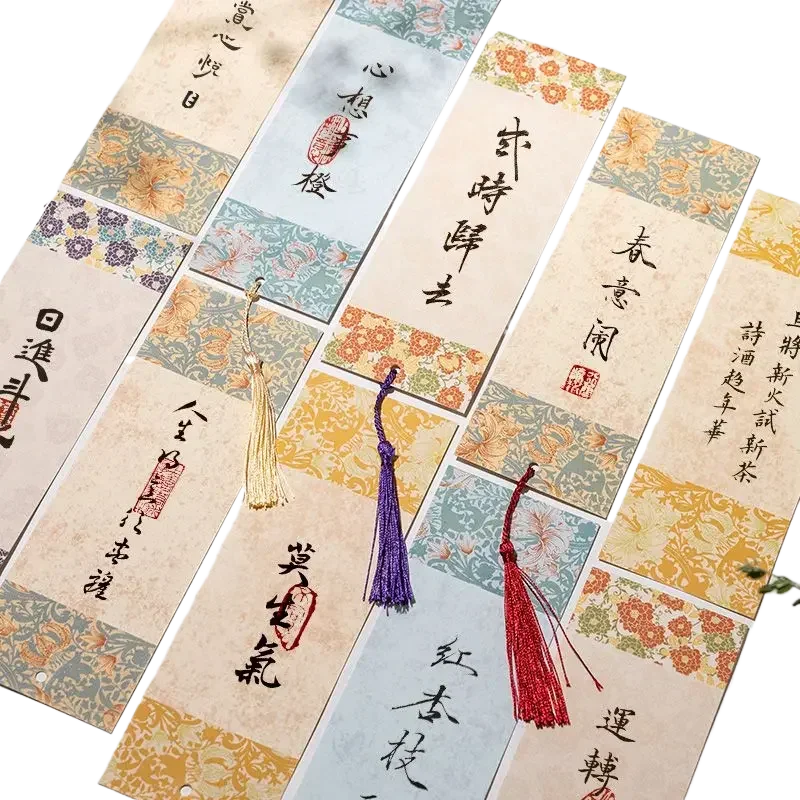 賞心悅目
心想事橙
幾時歸去
春意闹
且將新火試新茶
詩酒趁年華
日進斗
人生
莫生氣
红杏枝
運轉